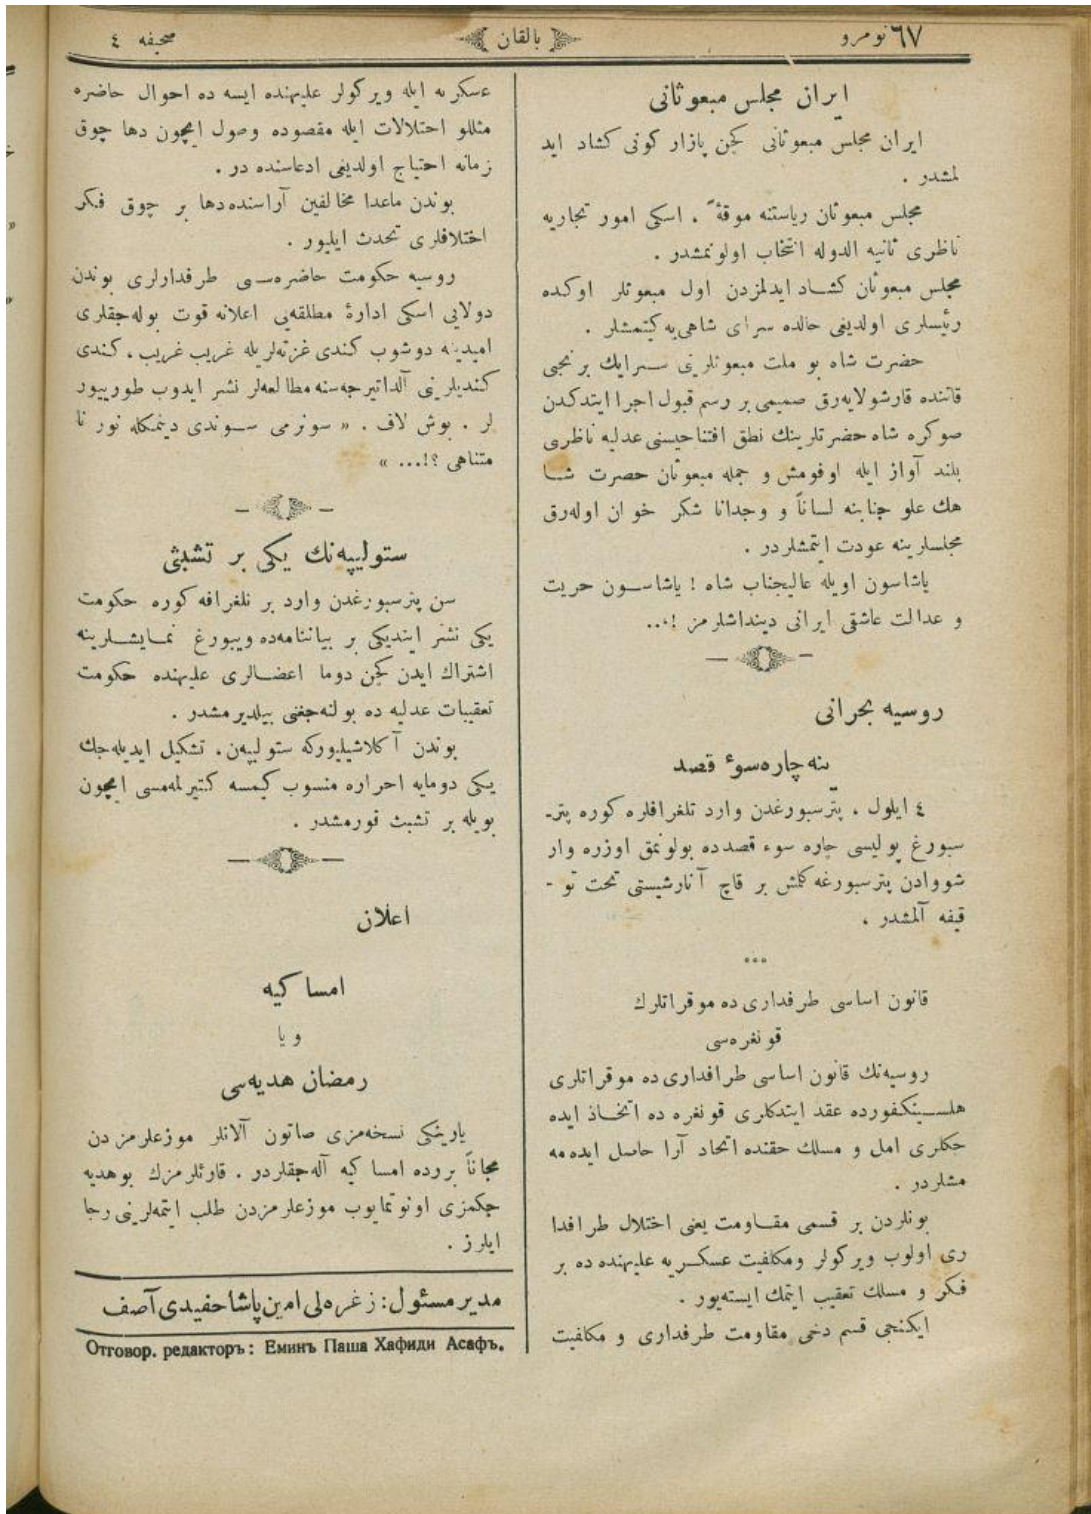 نومرو ٦٧
بالقان
صحیفه ٤
ایران مجلس مبعوثانی
ایران مجلس مبعوثانی کچن پازار کونی کشاد اید
لمشدر .
مجلس مبعوثان ریاستنه موقةً . اسکی امور تجاریه
ناظری ثانیه الدوله انتخاب اولونمشدر .
مجلس مبعوثان کشاد ایدلمزدن اول مبعوثلر اوکده
رئیسلری اولدیغی حالده سرای شاهی‌یه کیتمشلر .
حضرت شاه بو ملت مبعوثلرینی سرایك برنجی
قاتنده قارشولایه‌رق صمیمی بر رسم قبول اجرا ایتدکدن
صوکره شاه حضرتلرینك نطق افتتاحیسنی عدلیه ناظری
بلند آواز ایله اوقومش و جمله مبعوثان حضرت شا
هك علو جنابنه لساناً و وجدانا شکر خوان اوله‌رق
مجلسلرینه عودت ایتمشلردر .
یاشاسون اویله عالیجناب شاه ! یاشاسون حریت
و عدالت عاشقی ایرانی دینداشلرمز !..
روسیه بحرانی
ینه چاره‌سوء قصد
٤ ایلول ، پترسبورغدن وارد تلغرافلره کوره پتر-
سبورغ پولیسی چاره سوء قصدده بولونمق اوزره وار
شووادن پترسبورغه کلمش بر قاچ آنارشیستی تحت تو -
قیفه آلمشدر .
°°°
قانون اساسی طرفداری ده موقراتلرك
قونغره‌سی
روسیه‌نك قانون اساسی طرافداری ده موقراتلری
هلسینکفورده عقد ایتدکلری قونغره ده اتخاذ ایده
جکلری امل و مسلك حقنده اتحاد آرا حاصل ایده مه
مشلردر .
بونلردن بر قسمی مقاومت یعنی اختلال طرافدا
ری اولوب ویرکولر ومکلفیت عسکریه علیهنده ده بر
فکر و مسلك تعقیب ایتمك ایسته‌یور .
ایکنجی قسم دخی مقاومت طرفداری و مکلفیت
عسکریه ایله ویرکولر علیهنده ایسه ده احوال حاضره
مثللو احتلالات ایله مقصوده وصول ایچون دها چوق
زمانه احتیاج اولدیغی ادعاسنده در .
بوندن ماعدا مخالفین آراسنده‌دها بر چوق فکر
اختلافلری تحدث ایلیور .
روسیه حکومت حاضره‌سی طرفدارلری بوندن
دولایی اسکی ادارهٔ مطلقه‌یی اعلانه قوت بوله‌جقلری
امیدینه دوشوب کندی غزته‌لریله غریب غریب ، کندی
کندیلرینی آلداتیرجه‌سنه مطالعه‌لر نشر ایدوب طورییور
لر . بوش لاف . « سونرمی سوندی دینمکله نور نا
متناهی ؟!... »
ستولیپه‌نك یکی بر تشبثی
سن پترسبورغدن وارد بر تلغرافه کوره حکومت
یکی نشر ایتدیکی بر بیاننامه‌ده ویبورغ نمایشلرینه
اشتراك ایدن کچن دوما اعضالری علیهنده حکومت
تعقیبات عدلیه ده بولنه‌جغنی بیلدیرمشدر .
بوندن آکلاشیلیورکه ستولیپه‌ن ، تشکیل ایدیله‌جك
یکی دومایه احراره منسوب کیمسه کتیرلمه‌مسی ایچون
بویله بر تشبث قورمشدر .
اعلان
امساکیه
ویا
رمضان هدیه‌سی
یارینکی نسخه‌مزی صاتون آلانلر موزعلرمزدن
مجاناً برده امساکیه آله‌جقلردر . قارئلرمزك بوهدیه
جکمزی اونوتمایوب موزعلرمزدن طلب ایتمه‌لرینی رجا
ایلرز .
مدیر مسئول : زغره‌لی امین پاشا حفیدی آصف
Отговор. редакторъ: Еминъ Паша Хафиди Асафъ.